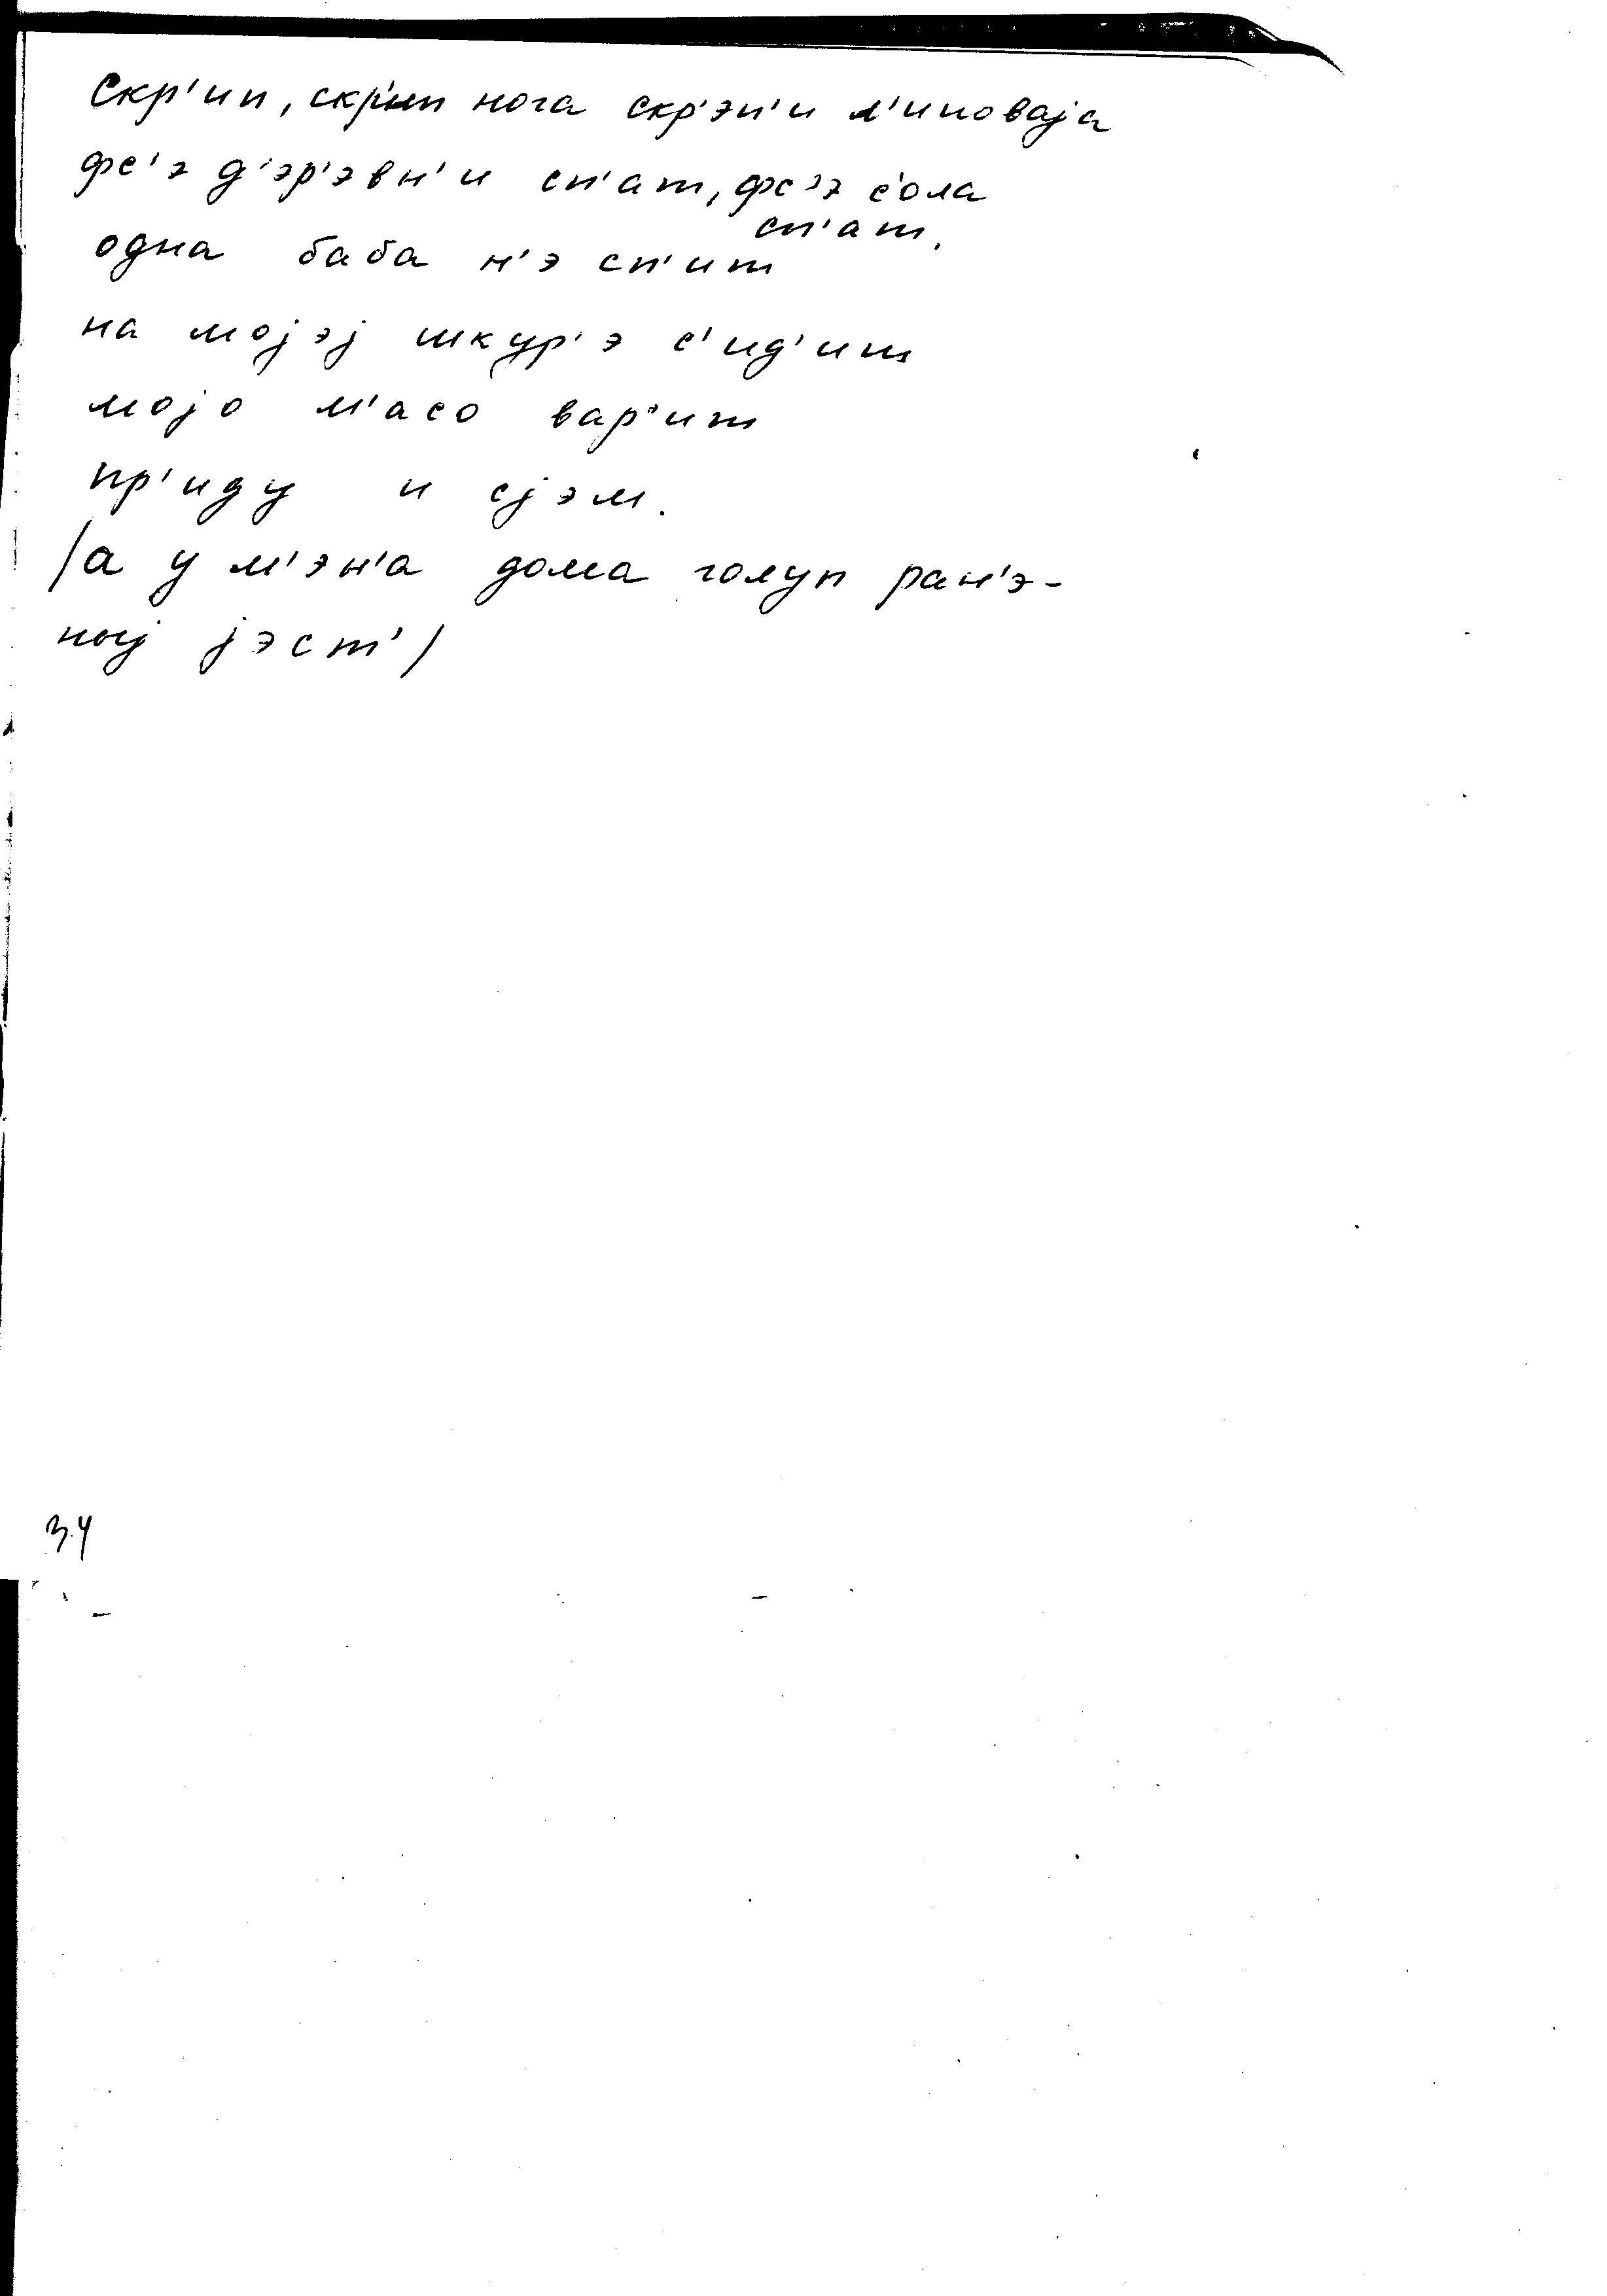 Скр'ип, скр'ип нога скр'эп'и л'иповаjа
фс'э д'эр'эвн'и сп'ат, фс'э с'ола
сп'ат.
одна баба н'э сп'ит
на моjэj шкур'э с'ид'ит
моjо м'асо вар'ит
пр'иду и сjэм.
/а у м'эн'а дома голуп ран'э-
ноj jэст'/
34